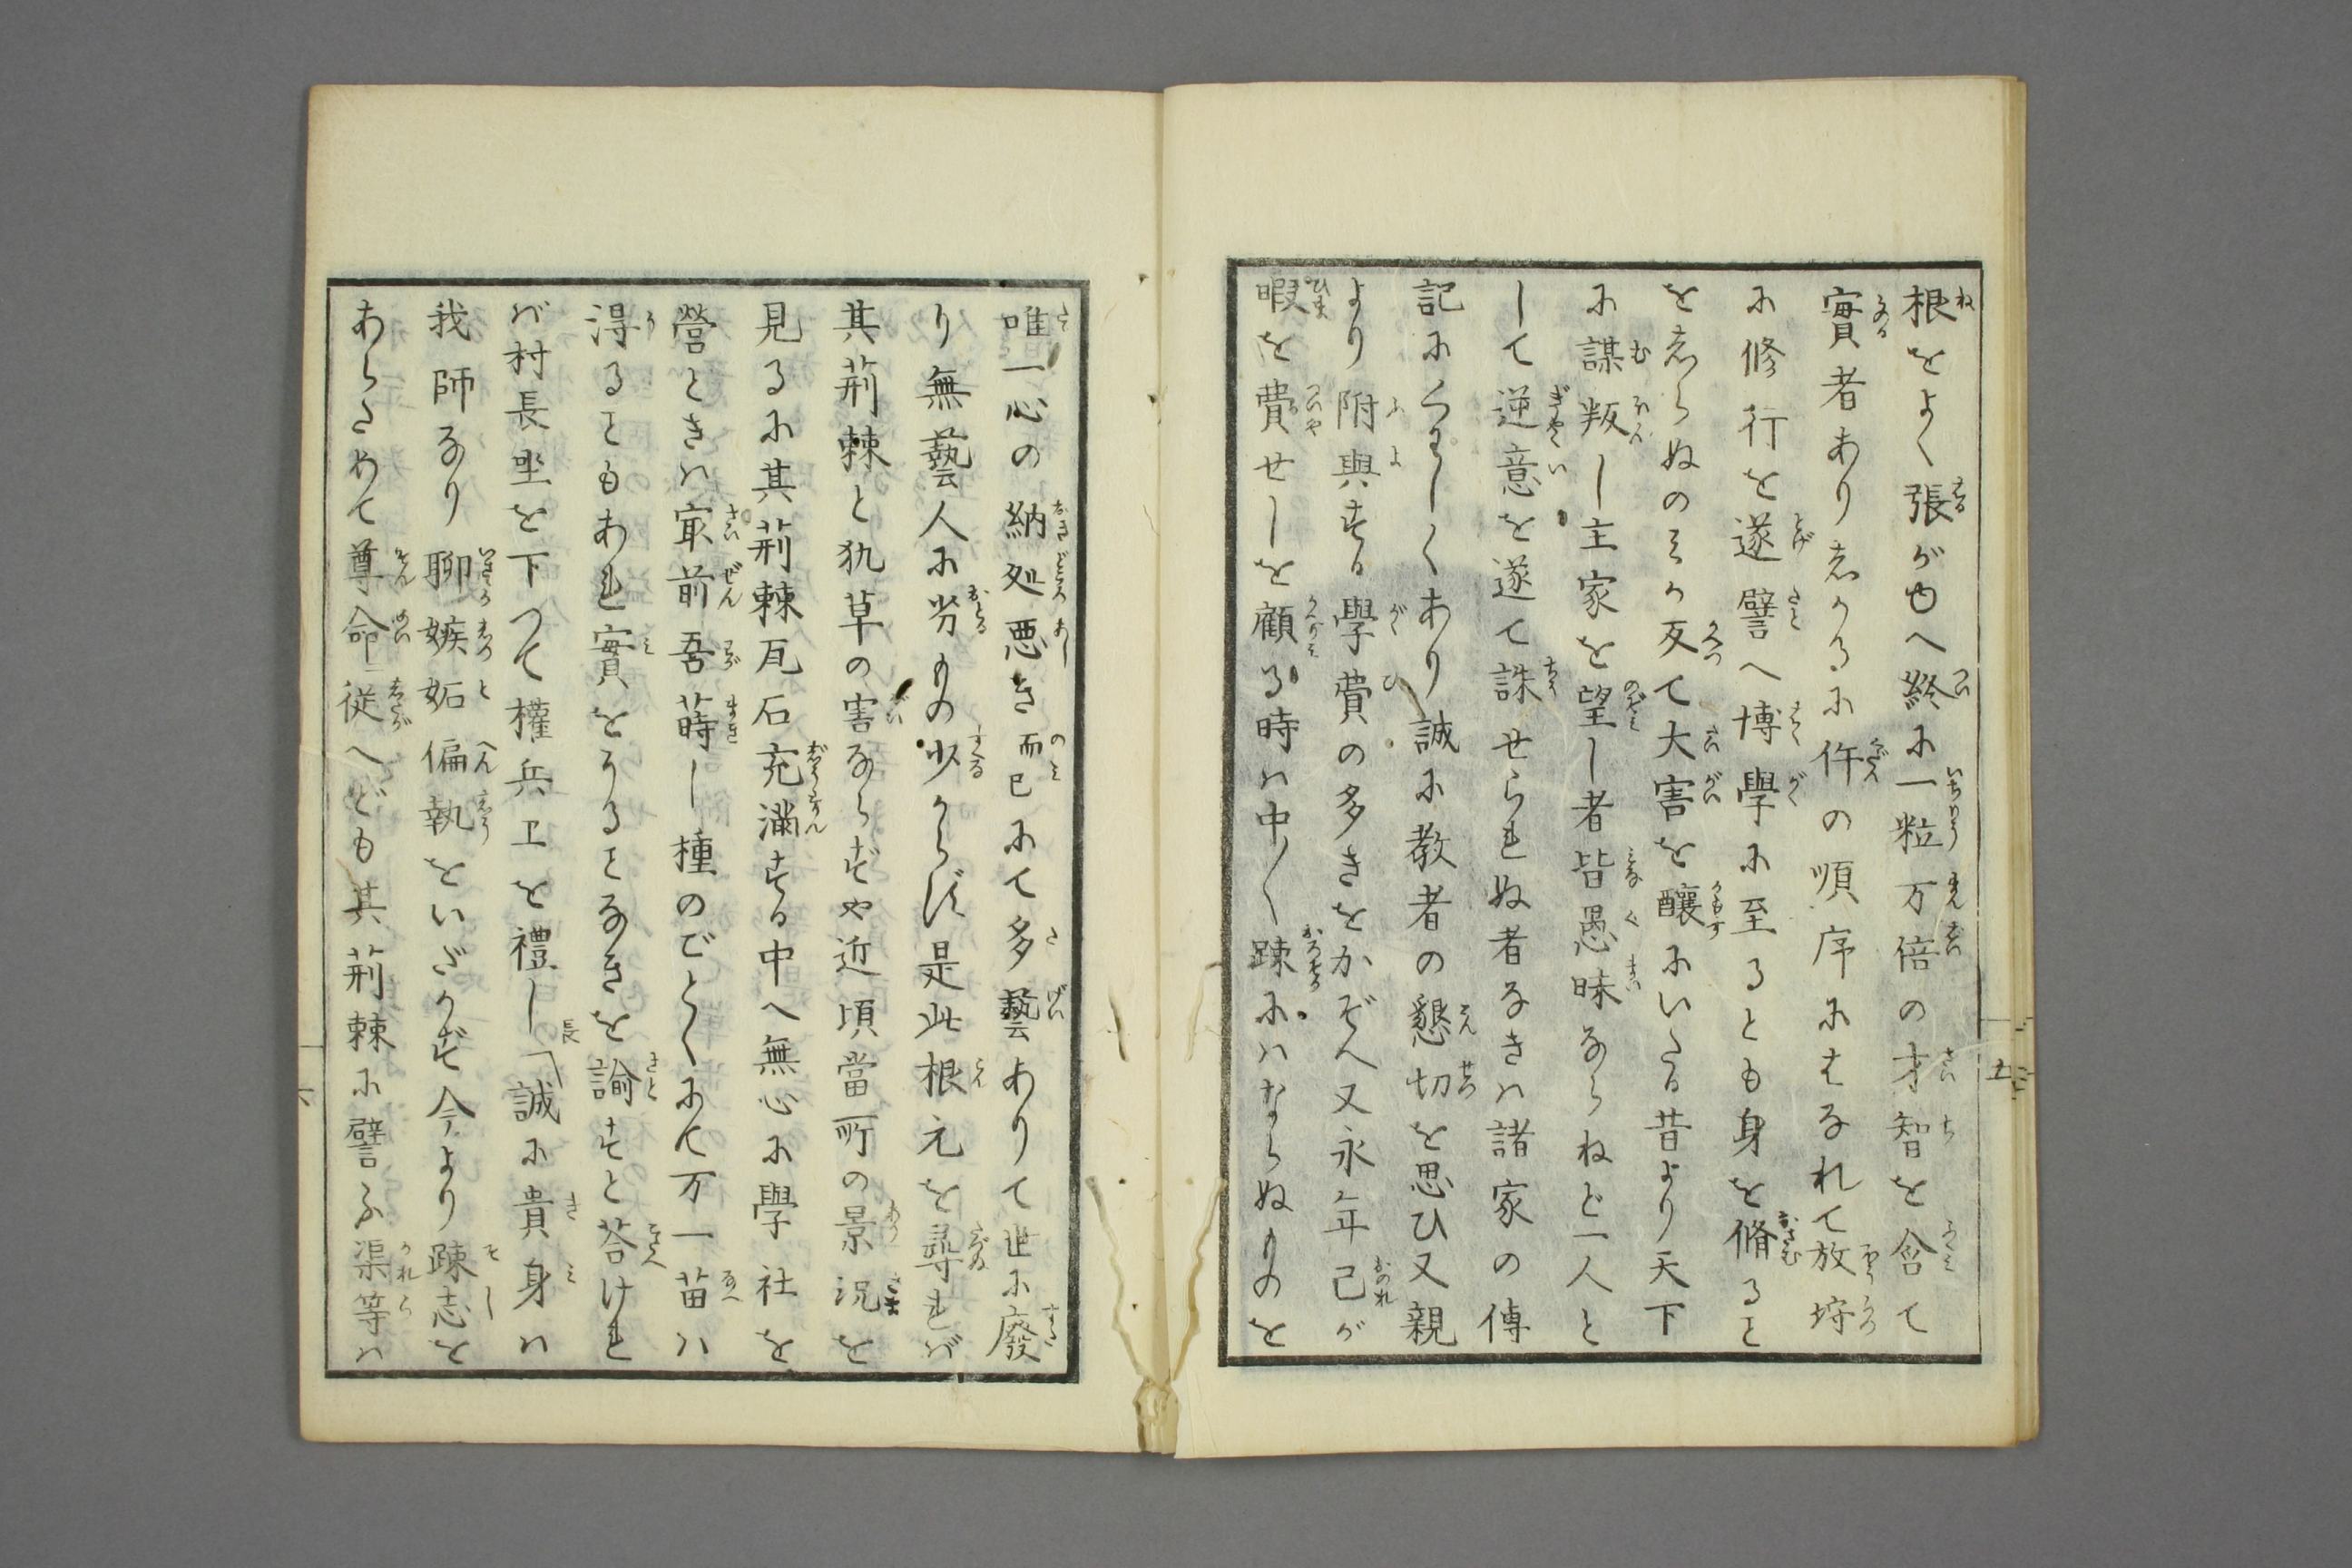 根をよく張がゆへ終に一粒万倍の才智を含て
實者ありしかるに件の順序にはなれて放埒
に修行を遂譬へ博學に至るとも身を脩るこ
をしらぬのミか反て大害を釀にいたる昔より天下
に謀叛し主家を望し者皆愚昧ならねど一人と
して逆意を遂て誅せられぬ者なきハ諸家の傳
記にくわしくあり誠に教者の懇切を思ひ又親
より附與する學費の多きをかぞへ又永年己が
暇を費せしを顧る時ハ中〱踈にハならぬものを
五
唯一心の納処悪き而已にて多藝ありて世に廢
り無藝人に劣もの少からず是此根元を尋れば
其荊棘と犰草の害ならずや近頃當町の景況を
見るに其荊棘瓦石充滿する中へ無心に學社を
營ときハ㝡前吾蒔し種のごとくにて万一苗ハ
得るともあれ實をうるこなきを諭すと荅けれ
ば村長坐を下つて權兵卫を禮し長「誠に貴身ハ
我師なり聊嫉妬偏執をいざかず今より踈志を
あらためて尊命ニ従へども其荊棘に譬ふ渠等ハ
六